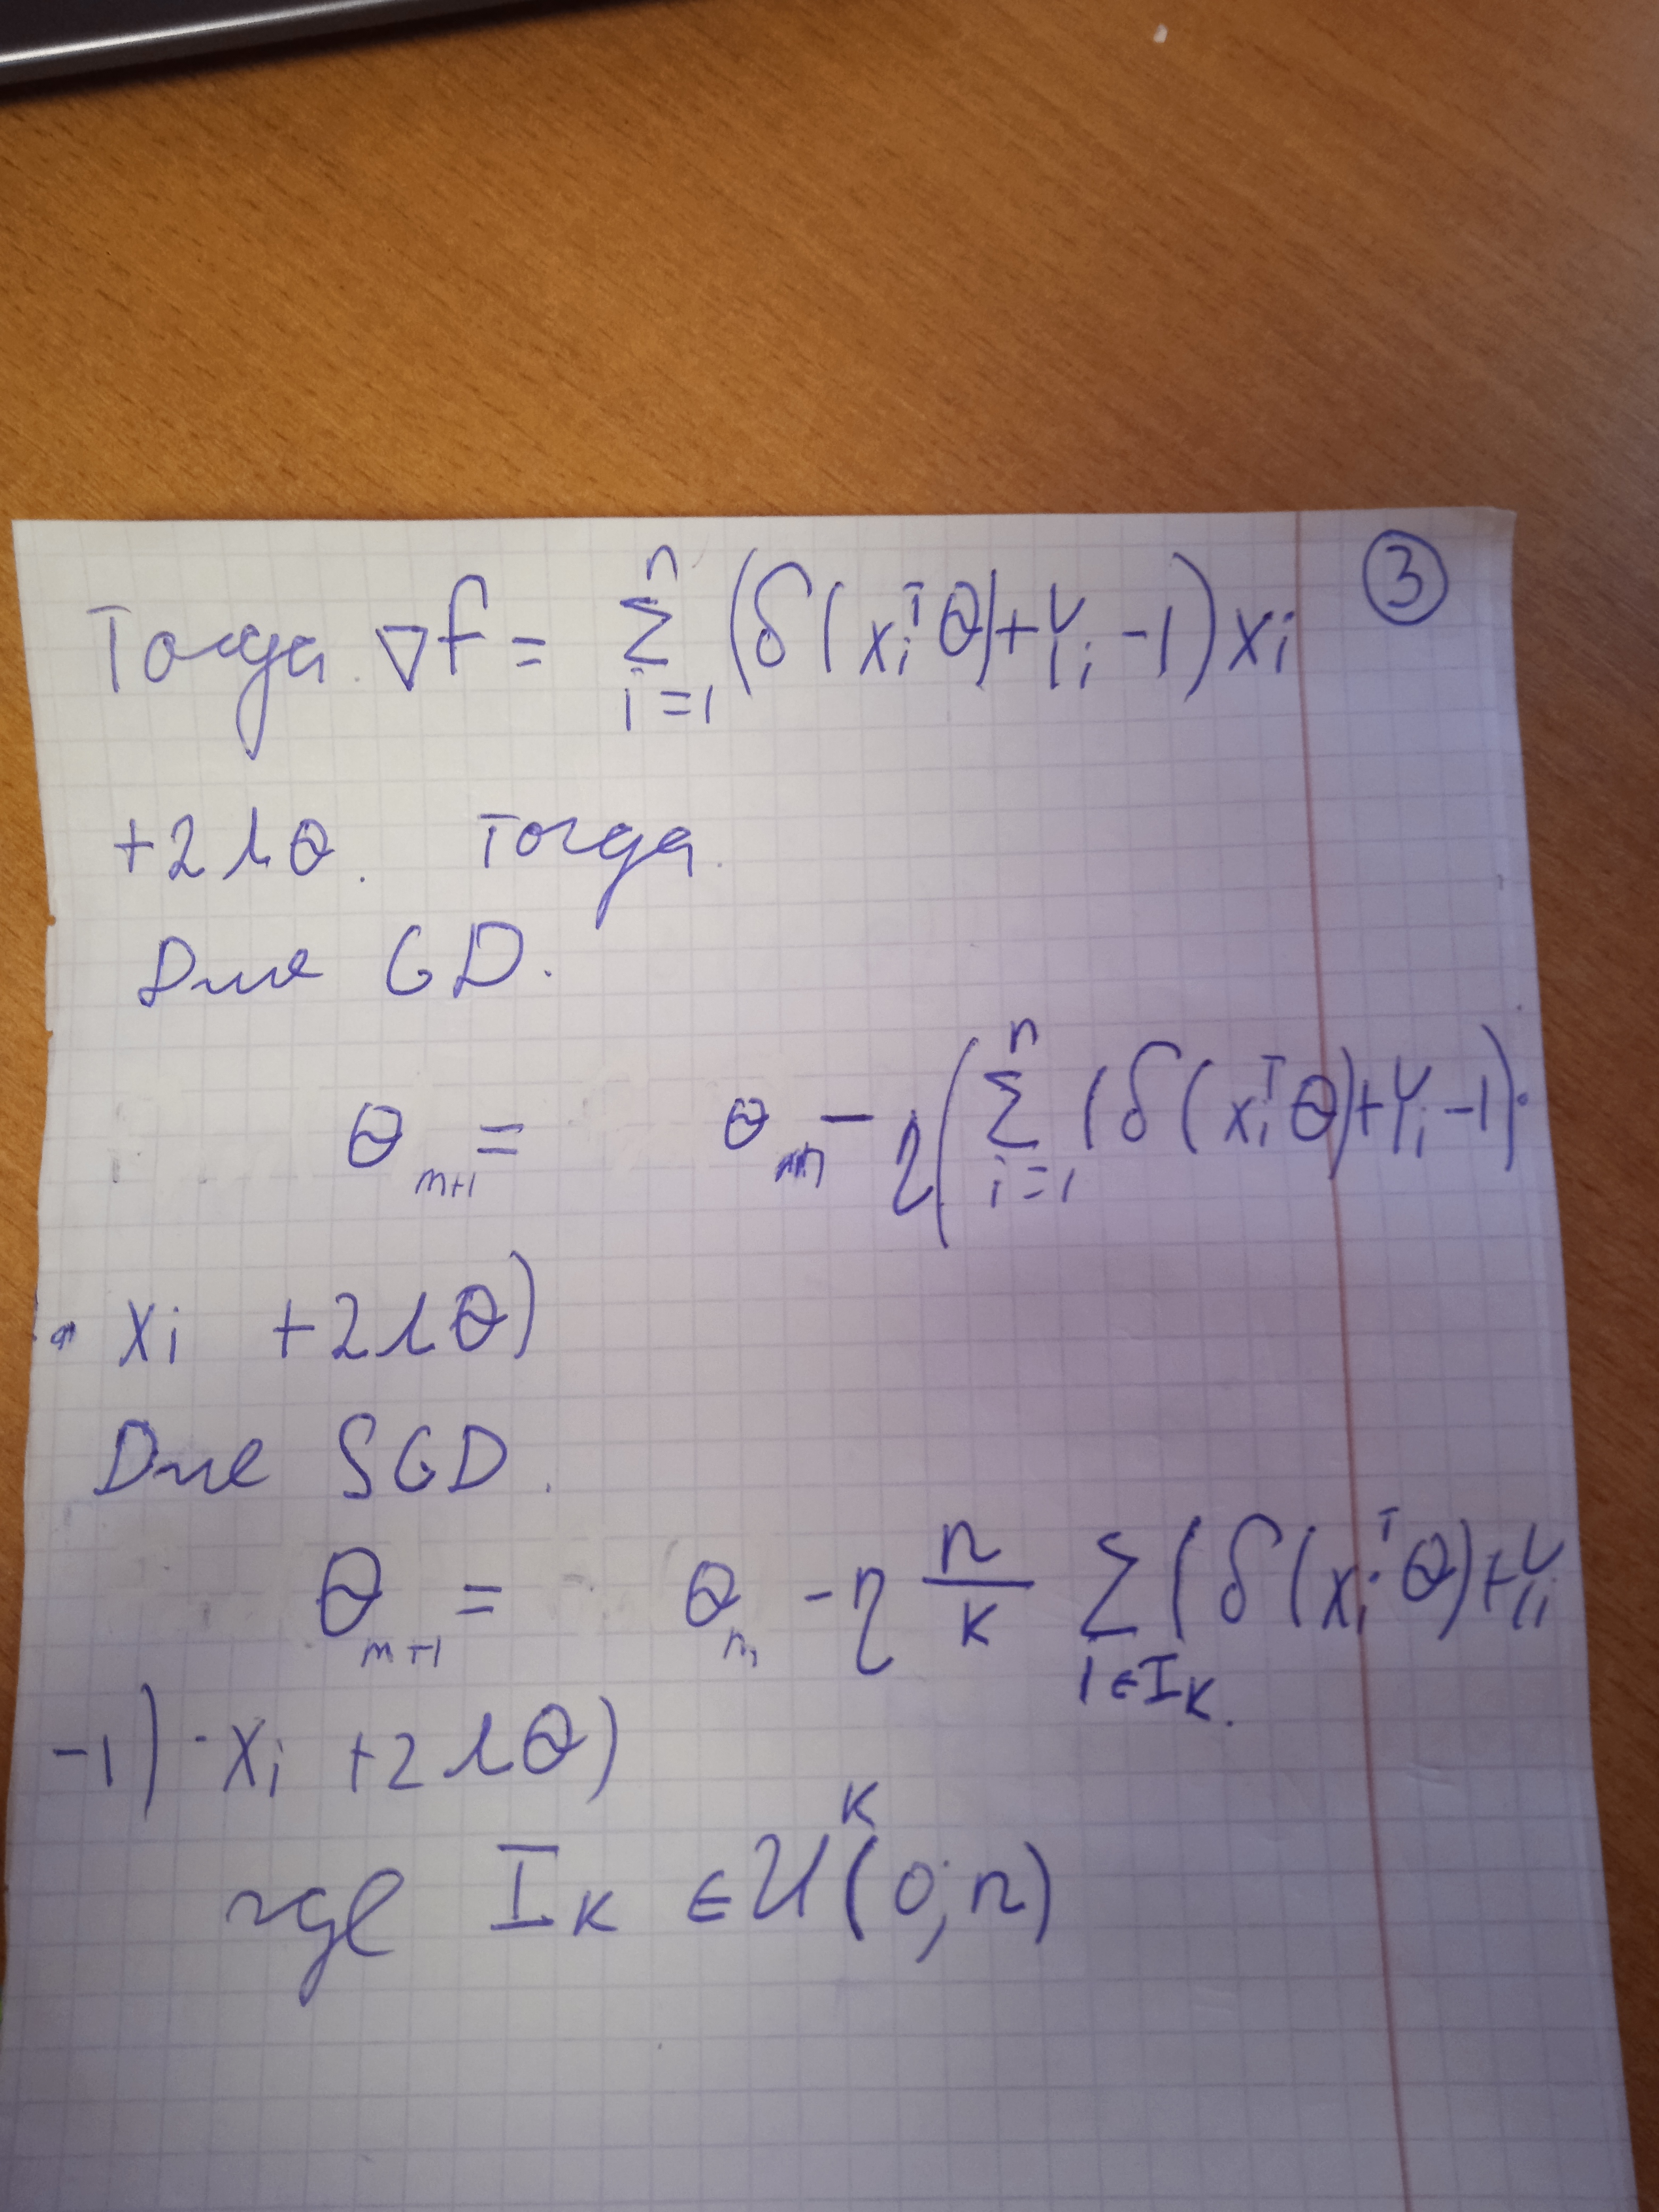 ③
Тогда ∇f = Σ_{i=1}^{n} (δ(x_i^T θ)+Y_i -1) x_i
+2λθ. Тогда.
Для GD.
θ_{m+1} = θ_m - η(Σ_{i=1}^{n} (δ(x_i^T θ)+Y_i -1)·
· x_i +2λθ)
Для SGD.
θ_{m+1} = θ_m - η n/k Σ_{i∈I_k} (δ(x_i^T θ)+Y_i
-1)·x_i +2λθ)
где I_k ∈ U^k(0;n)